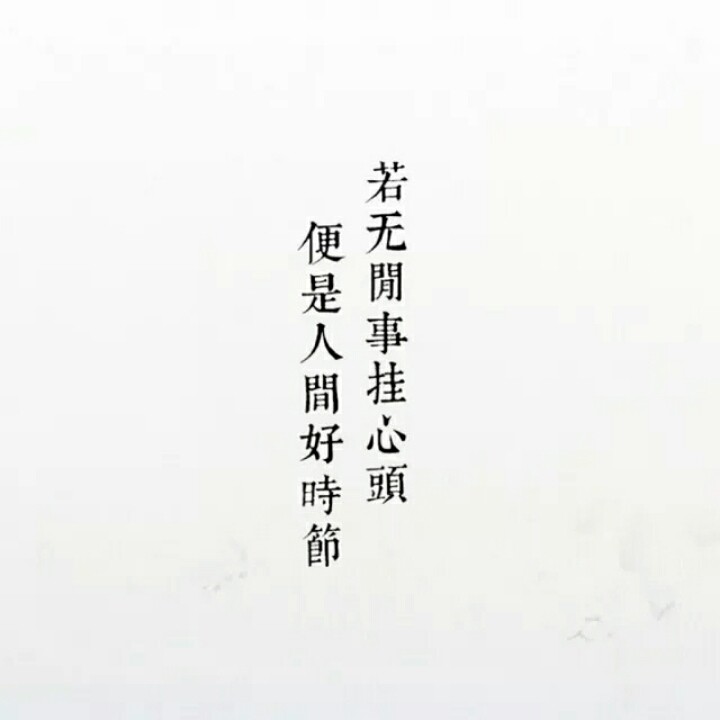 若无閒事挂心頭
便是人間好時節